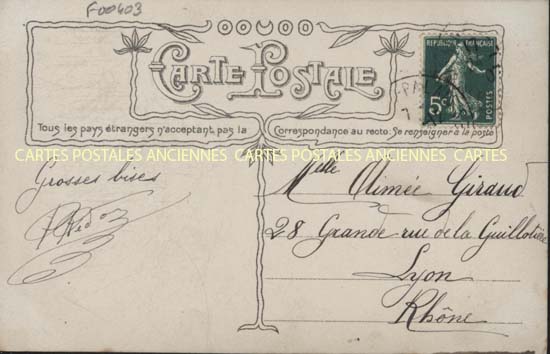 F00403
CARTE POSTALE
RÉPUBLIQUE FRANÇAISE
5c
POSTES
Tous les pays étrangers n'acceptant pas la Correspondance au recto. Se renseigner à la poste
CARTES POSTALES ANCIENNES CARTES POSTALES ANCIENNES CARTES
Grosses bises
Mlle Aimée Giraud
28 Grande rue de la Guillotière
Lyon
Rhône